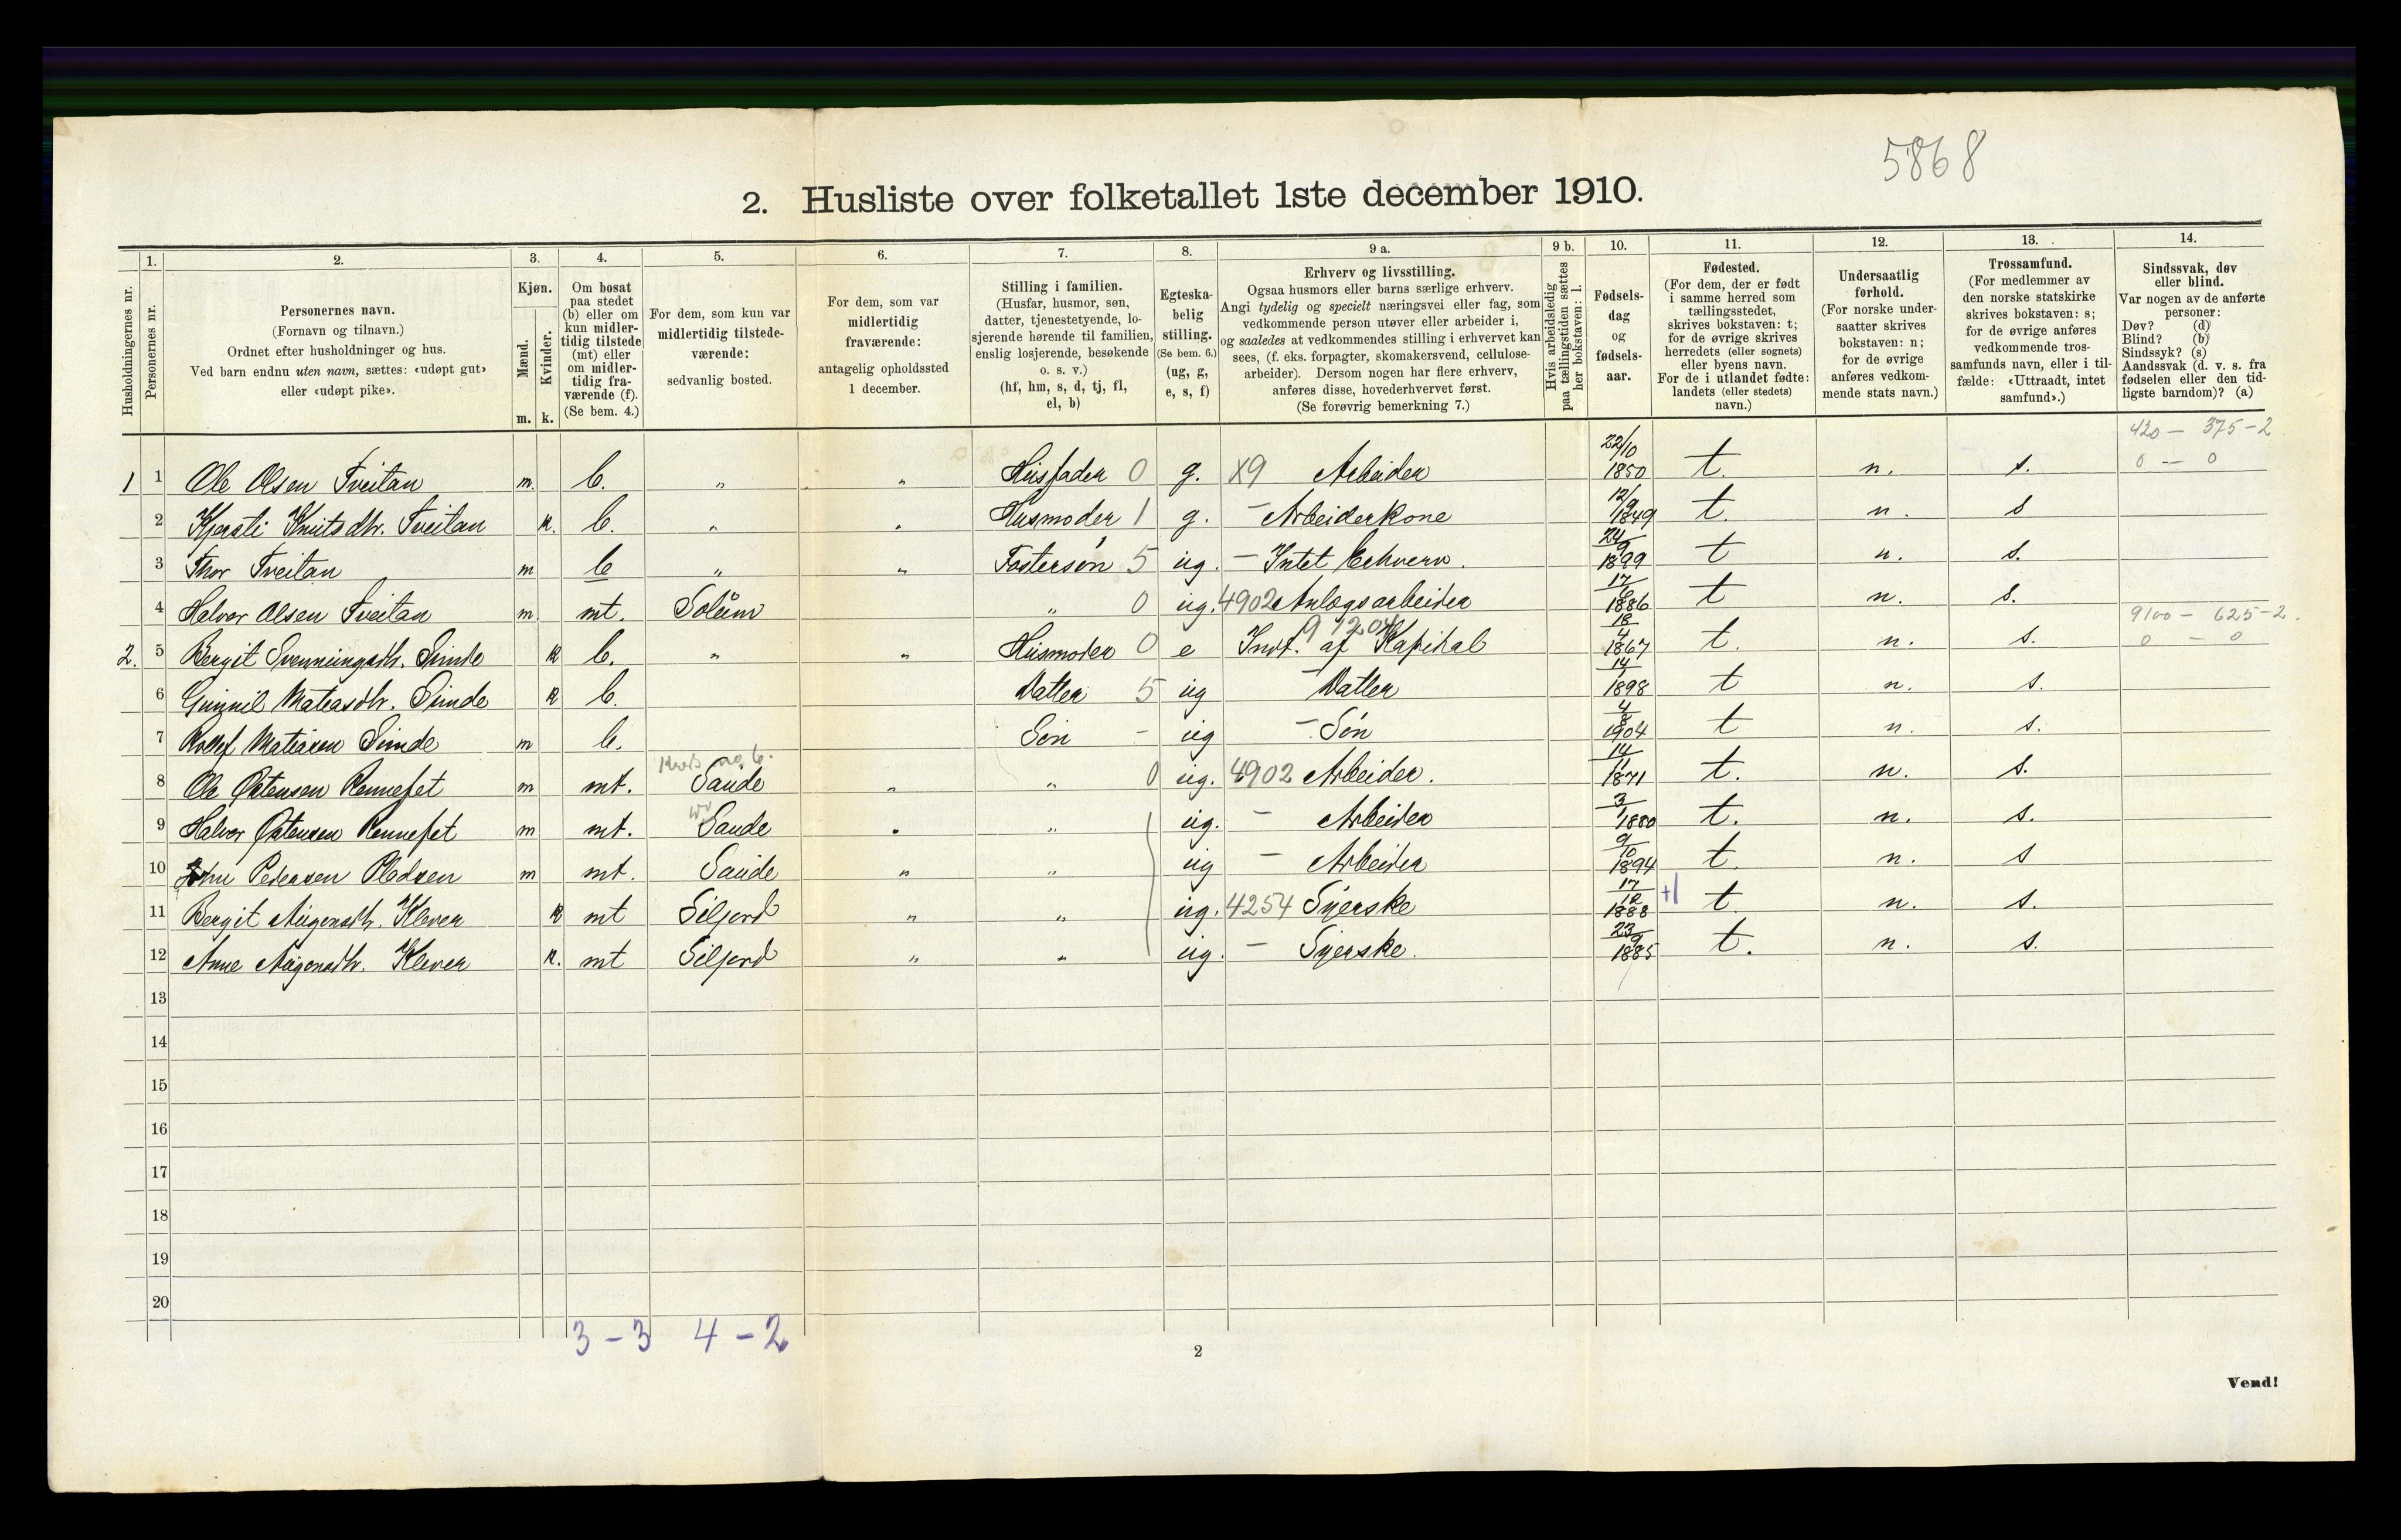 5868
2. Husliste over folketallet 1ste december 1910.
Husholdningernes nr.
1.
Personernes nr.
2.
Personernes navn.
(Fornavn og tilnavn.)
Ordnet efter husholdninger og hus.
Ved barn endnu uten navn, sættes: «udøpt gut»
eller «udøpt pike».
3.
Kjøn.
Mænd.
Kvinder.
m. k.
4.
Om bosat
paa stedet
(b) eller om
kun midler-
tidig tilstede
(mt) eller
om midler-
tidig fra-
værende (f).
(Se bem. 4.)
5.
For dem, som kun var
midlertidig tilstede-
værende:
sedvanlig bosted.
6.
For dem, som var
midlertidig
fraværende:
antagelig opholdssted
1 december.
7.
Stilling i familien.
(Husfar, husmor, søn,
datter, tjenestetyende, lo-
sjerende hørende til familien,
enslig losjerende, besøkende
o. s. v.)
(hf, hm, s, d, tj, fl,
el, b)
8.
Egteska-
belig
stilling.
(Se bem. 6.)
(ug, g,
e, s, f)
9 a.
Erhverv og livsstilling.
Ogsaa husmors eller barns særlige erhverv.
Angi tydelig og specielt næringsvei eller fag, som
vedkommende person utøver eller arbeider i,
og saaledes at vedkommendes stilling i erhvervet kan
sees, (f. eks. forpagter, skomakersvend, cellulose-
arbeider). Dersom nogen har flere erhverv,
anføres disse, hovederhvervet først.
(Se forøvrig bemerkning 7.)
9 b.
Hvis arbeidsledig
paa tællingstiden sættes
her bokstaven: l.
10.
Fødsels-
dag
og
fødsels-
aar.
11.
Fødested.
(For dem, der er født
i samme herred som
tællingsstedet,
skrives bokstaven: t;
for de øvrige skrives
herredets (eller sognets)
eller byens navn.
For de i utlandet fødte:
landets (eller stedets)
navn.)
12.
Undersaatlig
forhold.
(For norske under-
saatter skrives
bokstaven: n;
for de øvrige
anføres vedkom-
mende stats navn.)
13.
Trossamfund.
(For medlemmer av
den norske statskirke
skrives bokstaven: s;
for de øvrige anføres
vedkommende tros-
samfunds navn, eller i til-
fælde: «Uttraadt, intet
samfund».)
14.
Sindssvak, døv
eller blind.
Var nogen av de anførte
personer:
Døv? (d)
Blind? (b)
Sindssyk? (s)
Aandssvak (d. v. s. fra
fødselen eller den tid-
ligste barndom)? (a)
420 — 375-2
0 — 0
1 1 Ole Olsen Tveitan m. b. „ „ Husfader 0 g. X9 Arbeider 22/10 1850 t. n. s.
2 Kjersti Knutsdtr. Tveitan k. b. „ „ Husmoder 1 g. — Arbeiderkone 12/9 1849 t. n. s
3 Thor Tveitan m b „ „ Fostersøn 5 ug. — Intet Erhverv. 24/9 1899 t n. s.
4 Halvor Olsen Tveitan m. mt. Solum „ 0 ug. 4902 Anlægsarbeider 17/6 1886 t n. s.
9100 — 625-2.
0 — 0
91204
2. 5 Bergit Svenningsdtr. Sunde k b. „ „ Husmoder 0 e Indt. af Kapital 18/4 1867 t. n. s.
6 Gunnil Mateasdtr. Sunde k b. Datter 5 ug — Datter 1898 t n. s.
7 Rollef Mateasen Sunde m b. Søn - ug — Søn 4/8 1904 t n. s.
Kreds no. 6.
8 Ole Østensen Rennefet m mt. Saude „ „ 0 ug. 4902 Arbeider. 14/11 1871 t. n. s.
9 Halvor Østensen Rennefet m mt. Saude „ „ ug. — Arbeider 3/1 1880 t. n. s.
10 John Pedersen Pladsen m mt. Saude „ „ ug — Arbeider 9/10 1894 t. n. s
11 Bergit Aúgonsdtr. Klever k mt Siljord „ „ ug. 4254 Syerske 17/12 1888 +1 t. n. s.
12 Anne Aúgonsdtr. Klever k. mt Siljord „ „ ug. — Syerske. 23/9 1885 t. n. s.
13
14
15
16
17
18
19
20
3 - 3 4 - 2
2
Vend!